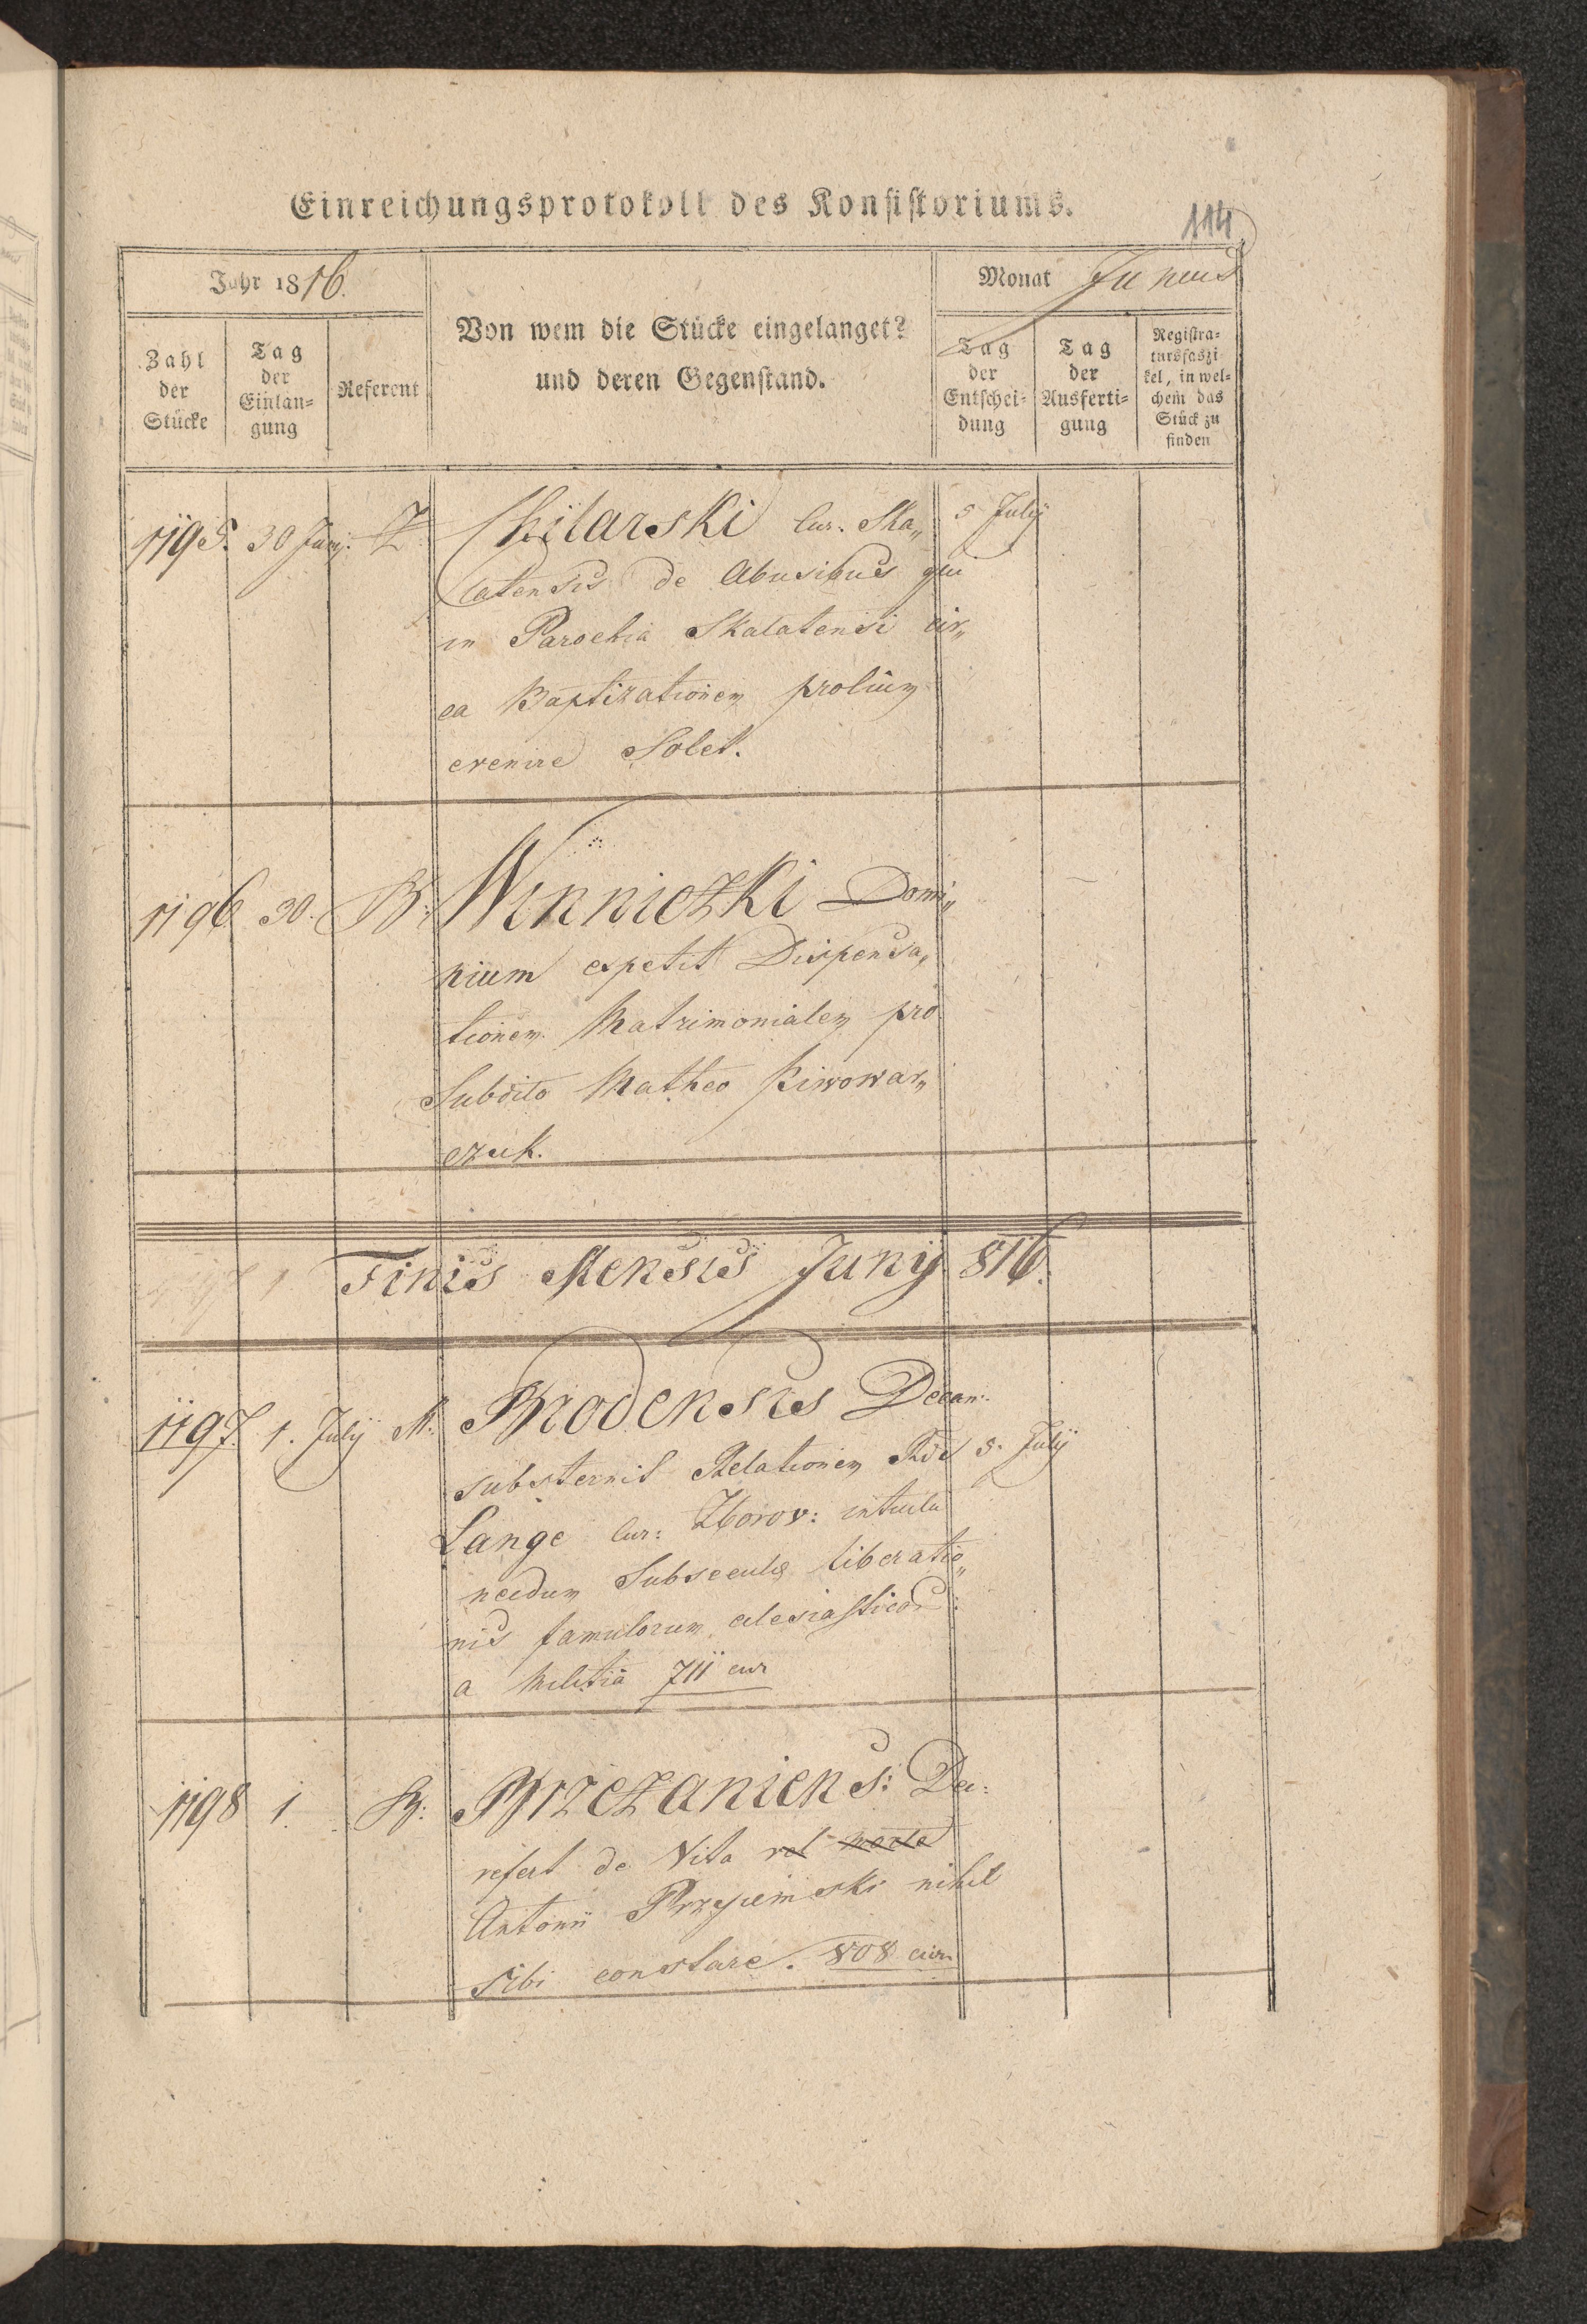 Einreichungsprotokoll des Konsistoriums.
114
Jahr 1816.
Von wem die Stücke eingelanget?
und deren Gegenstand.
Monat Junius
Zahl
der
Stücke
Tag
der
Einlan-
gung
Referent
Tag
der
Entschei-
dung
Tag
der
Ausferti-
gung
Registra-
tursfaszi
kel, in wel-
chem das
Stück zu
finden
1195. 30 Junij. Z Chilarski Cur. Ska„ 5 July
latensis de Abusibus qui
in Parochia Skalatensi cir„
ca Baptizationem prolium
evenire Solet.
1196 30. B: Winniczki Domi„
nium expetit Dispensa„
tionem Matrimonialem pro
Subdito Matheo Piwowar„
czuk.
Finis Mensis Junij 816.
1197. 1. July M: Brodensis Decan:
substernit Relationem Rdi 5. July
Lange Cur: Zborov: intuitu
necdum Subsecutae liberatio„
nis famulorum eclesiasticor:
a Militia 711 cur
1198 1. B: Brzezaniens: Dec:
refert de Vita vel morte
Antonii nihil
sibi constare. 808 cur.